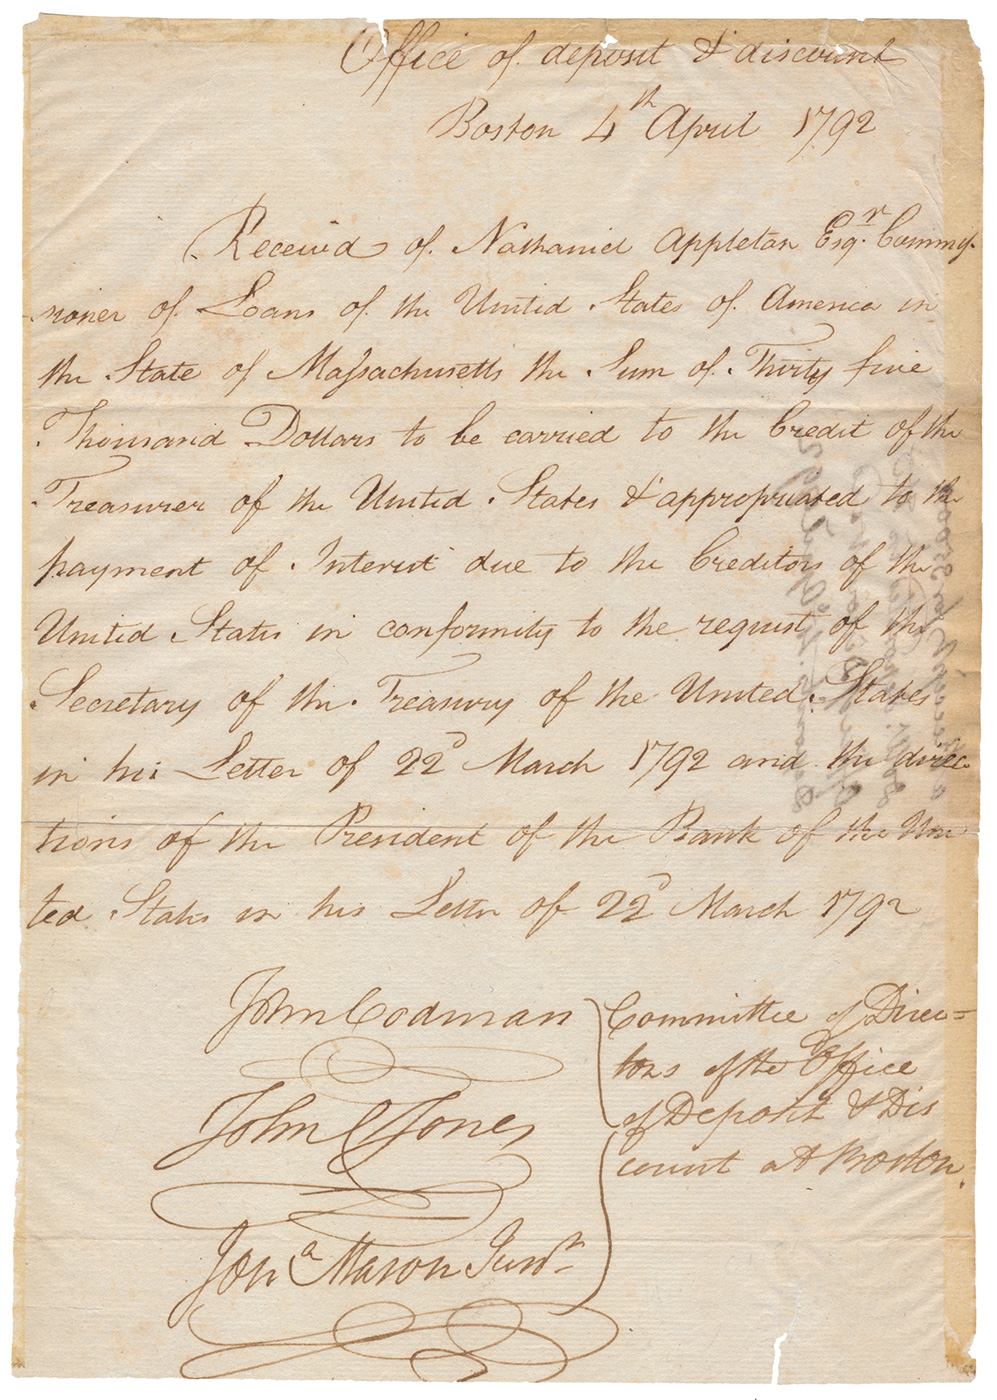 Office of deposit & discount
Boston 4th April 1792
Received of Nathaniel Appleton Esqr. Commis-
sioner of Loans of the United States of America in
the State of Massachusetts the Sum of Thirty five
Thousand Dollars to be carried to the Credit of the
Treasurer of the United States & appropriated to the
payment of Interest due to the Creditors of the
United States in conformity to the request of the
Secretary of the Treasury of the United States
in his Letter of 22d March 1792 and the direc
tions of the President of the Bank of the Uni
ted States in his Letter of 22d March 1792
John Codman
John C Jones
Jona Mason Junr
Committee of Direc=
tors of the Office
of Deposit & Dis
count at Boston.